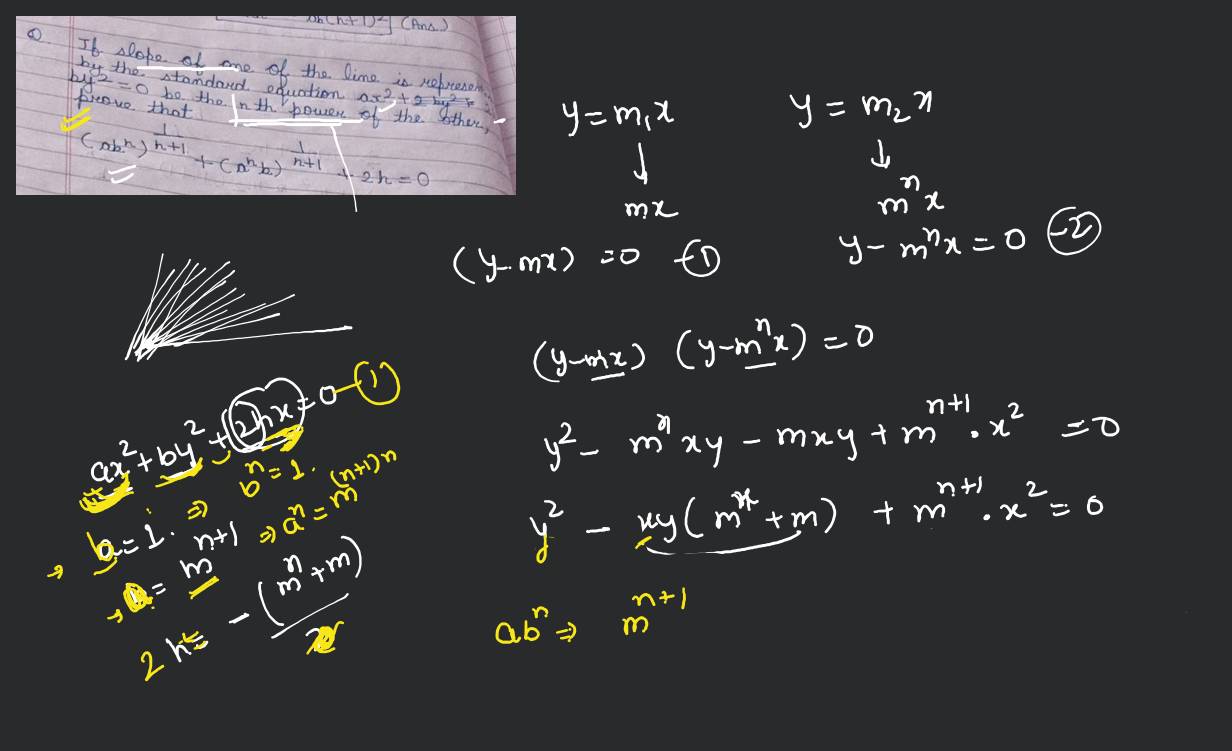 (Ans.)
If slope of one of the line is represen
by the standard equation ax²+2 hy²+
by²=0 be the nth power of the other,
prove that
(abⁿ)^(1/(n+1)) + (aⁿb)^(1/(n+1)) + 2h = 0
y = m₁x
↓
mx
(y-mx) = 0 —①
y = m₂x
↓
mⁿx
y - mⁿx = 0 —②
(y-mx) (y-mⁿx) = 0
y² - mⁿxy - mxy + mⁿ⁺¹ . x² = 0
y² - xy(mⁿ+m) + mⁿ⁺¹ . x² = 0
abⁿ ⇒ mⁿ⁺¹
ax² + by² + 2hx = 0 —①
b = 1. ⇒ bⁿ = 1.
a = mⁿ⁺¹ ⇒ aⁿ = m^((n+1)n)
2h = - (mⁿ+m)